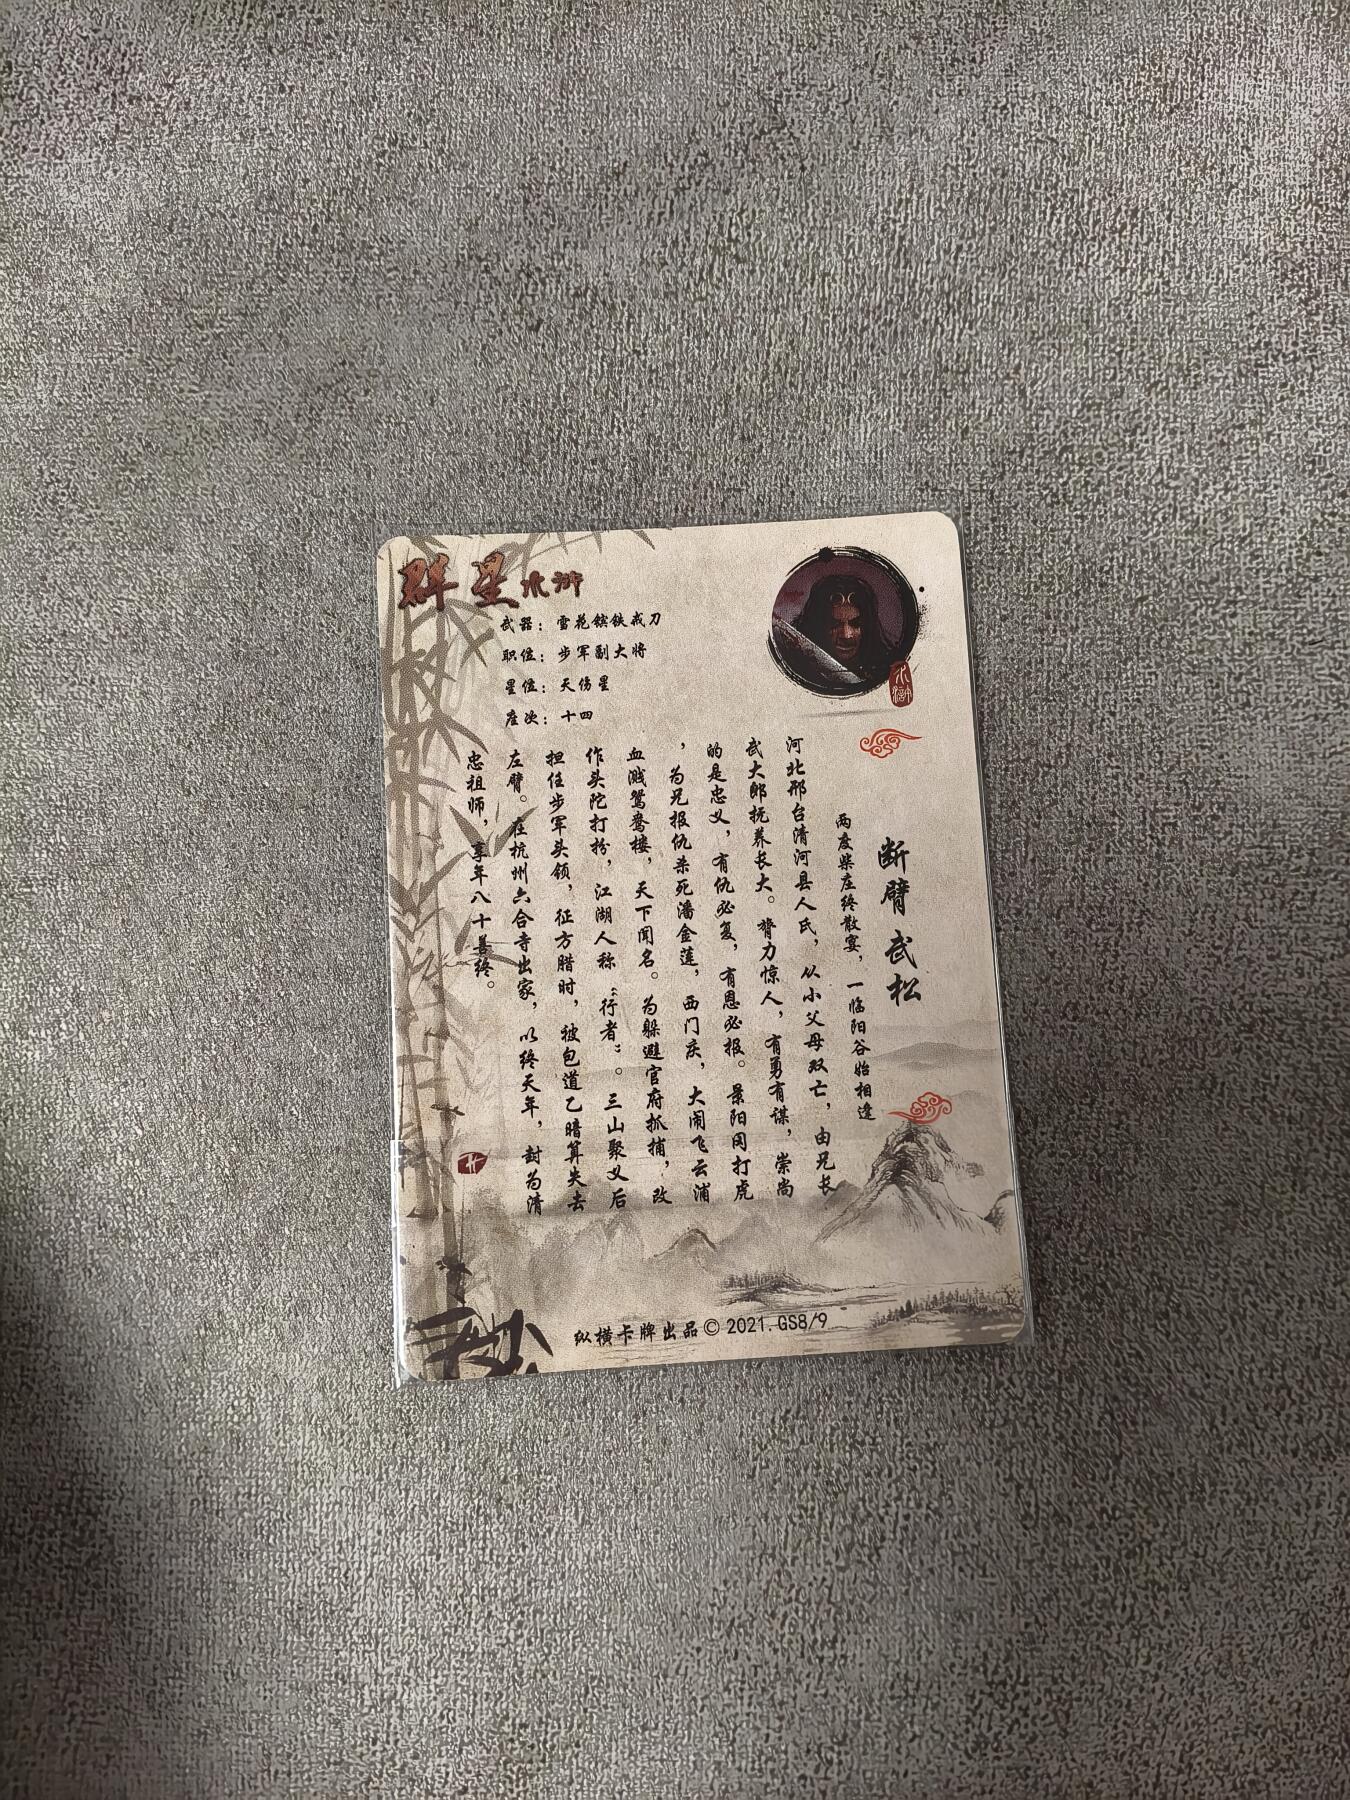 群星水浒
武器：雪花镔铁戒刀
职位：步军副大将
星位：天伤星
座次：十四
水浒
断臂武松
两度柴庄终散宴，一临阳谷始相逢
河北邢台清河县人氏，从小父母双亡，由兄长
武大郎抚养长大。膂力惊人，有勇有谋，崇尚
的是忠义，有仇必复，有恩必报。景阳冈打虎
，为兄报仇杀死潘金莲，西门庆，大闹飞云浦
血溅鸳鸯楼，天下闻名。为躲避官府抓捕，改
作头陀打扮，江湖人称“行者”。三山聚义后
担任步军头领，征方腊时，被包道乙暗算失去
左臂。在杭州六合寺出家，以终天年，封为清
忠祖师，享年八十善终。
纵横卡牌出品© 2021.GS8/9